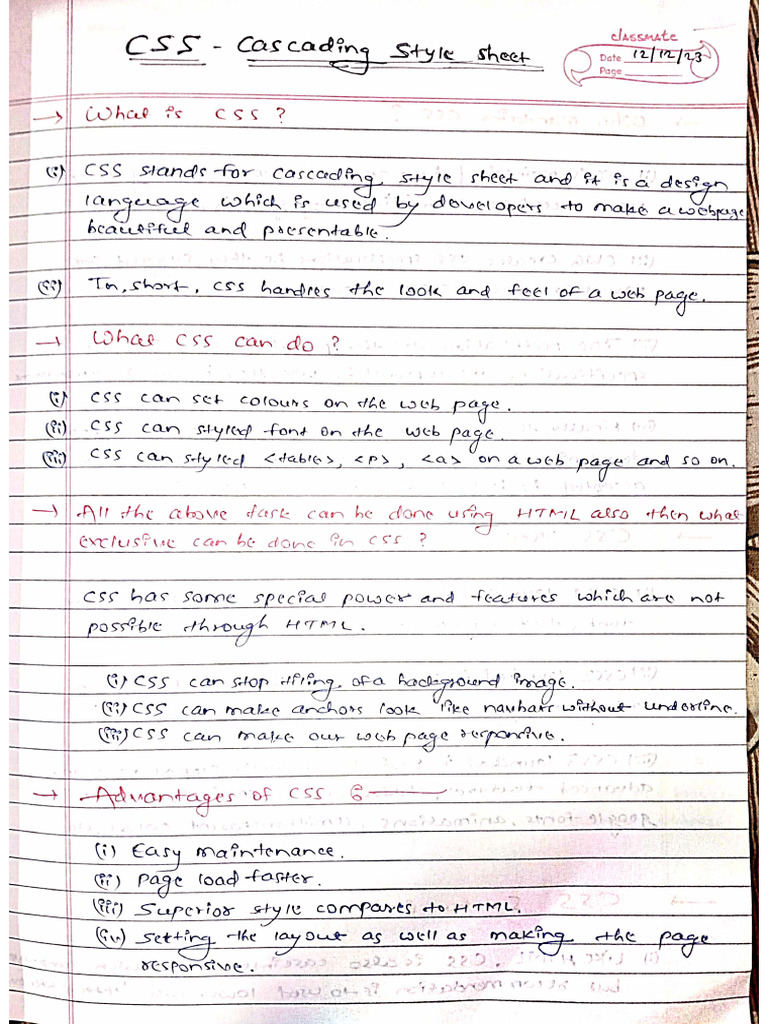 CSS - Cascading Style Sheet
classmate
Date 12/12/23
Page
→ What is CSS ?
(i) CSS stands for cascading style sheet and it is a design
language which is used by developers to make a webpage
beautiful and presentable.
(ii) In, short, css handles the look and feel of a web page.
→ What CSS can do ?
(i) CSS can set colours on the web page.
(ii) CSS can styled font on the web page.
(iii) CSS can styled <table>, <p>, <a> on a web page and so on.
→ All the above task can be done using HTML also then what
exclusive can be done in CSS ?
CSS has some special power and features which are not
possible through HTML.
(i) CSS can stop tiling of a background image.
(ii) CSS can make anchors look like navbars without underline.
(iii) CSS can make our web page responsive.
→ Advantages of CSS :-
(i) Easy maintenance.
(ii) Page load faster.
(iii) Superior style compares to HTML.
(iv) Setting the layout as well as making the page
responsive.